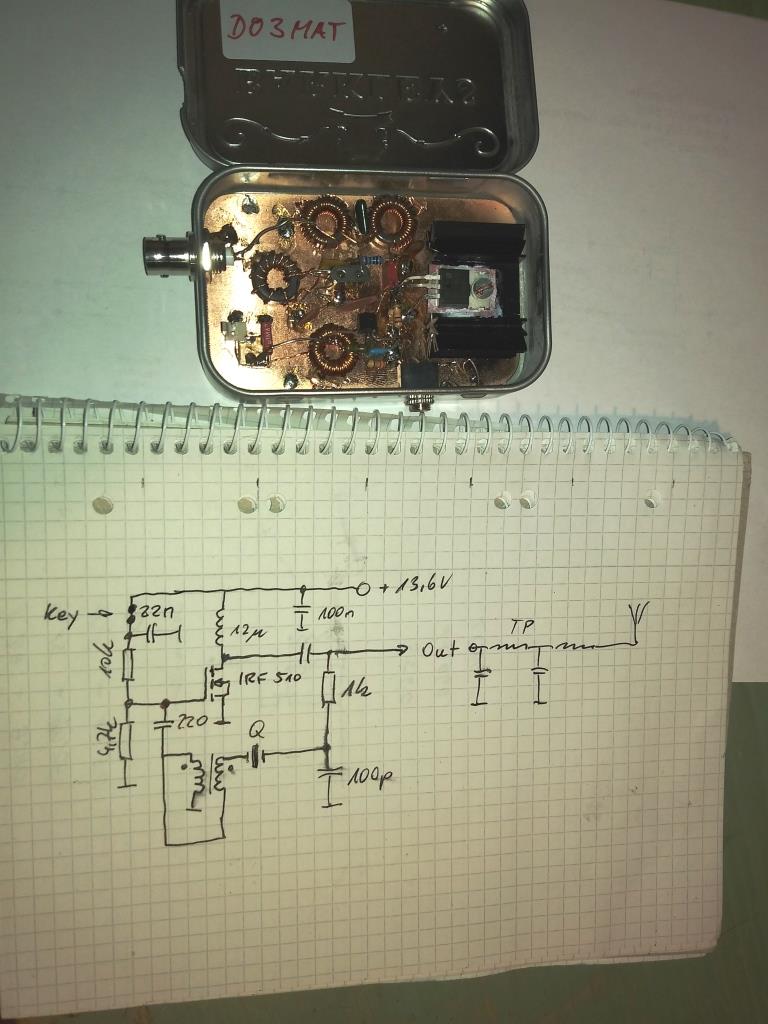 DO3MAT
+ 13,6V
Key →
22n
12µ
100n
TP
Out
10k
IRF 510
1k
220
4,7k
Q
100p